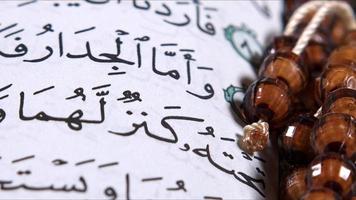 فَأَرَدْنَا
وَأَمَّا ٱلْجِدَارُ فَ
تَحْتَهُۥ كَنزٌ لَّهُمَا وَ
وَيَسْتَخ